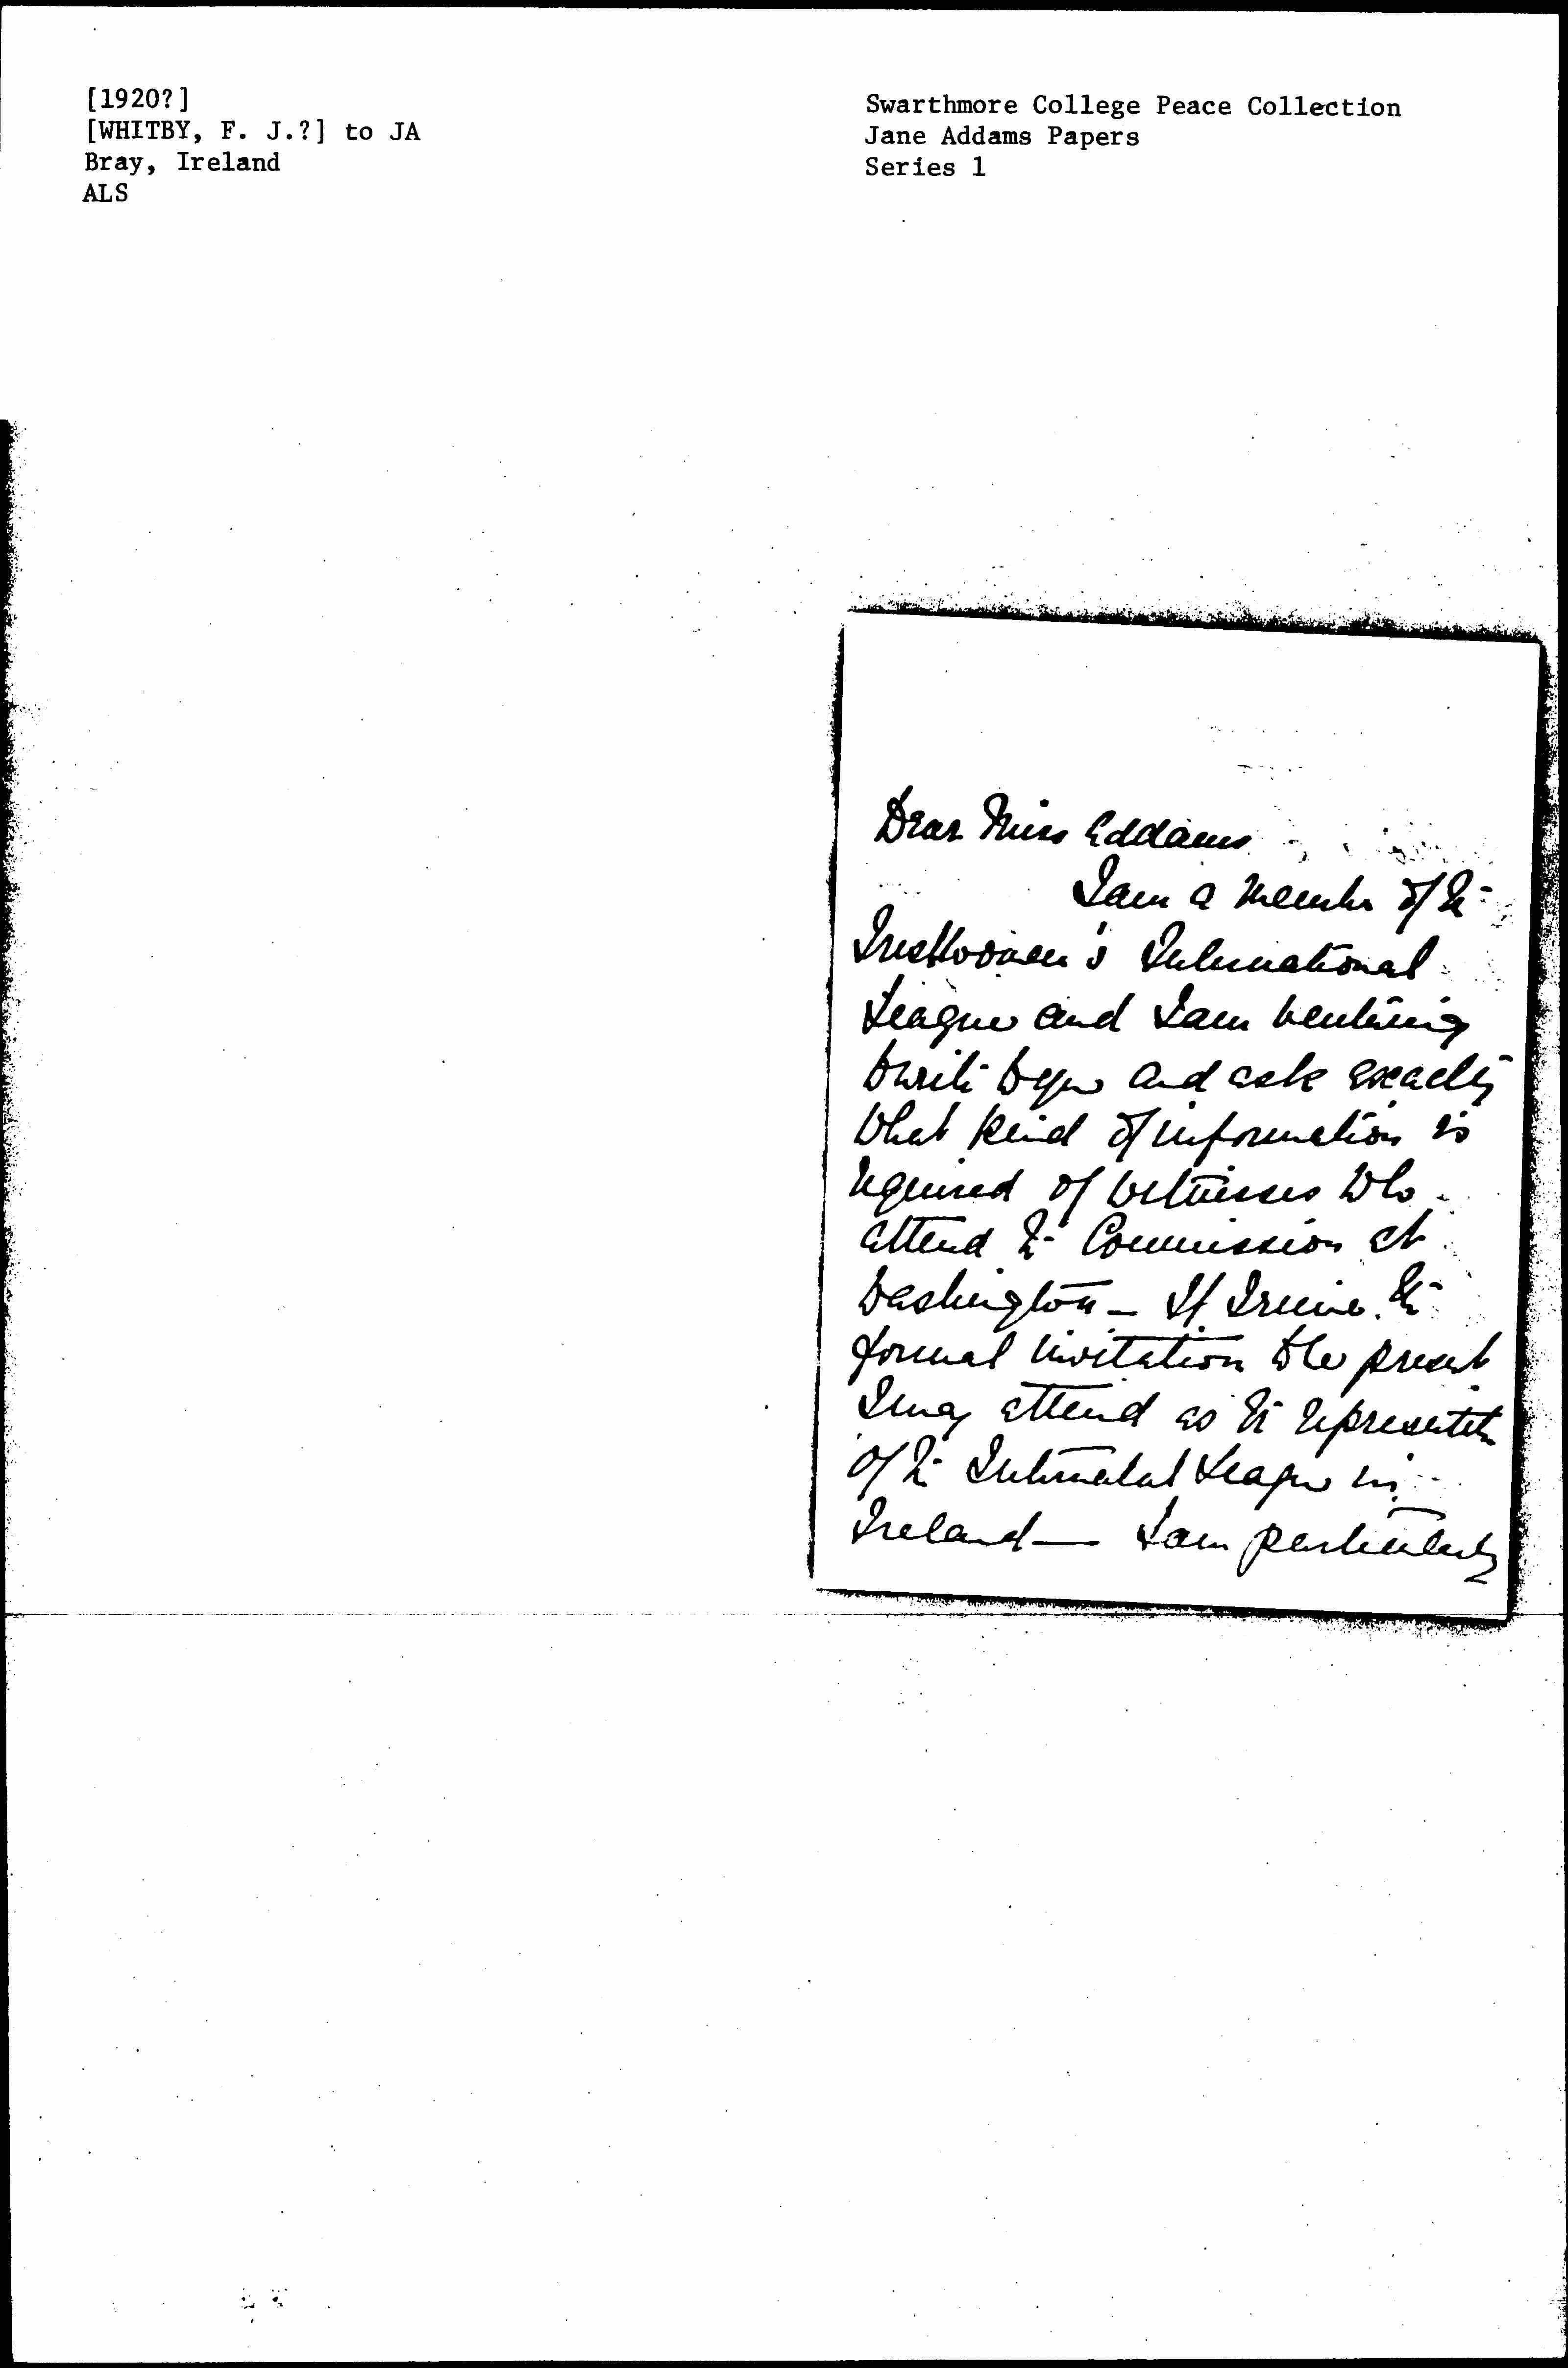 [1920?]
[WHITBY, F. J.?] to JA
Bray, Ireland
ALS
Swarthmore College Peace Collection
Jane Addams Papers
Series 1
Dear Miss Addams
I am a member of the
Irishwomen's International
League and I am venturing
to write to you and ask exactly
what kind of information is
required of witnesses who
attend the Commission at
Washington — If I receive the
formal invitation to be present
I may attend as the representative
of the International League in
Ireland — I am particularly